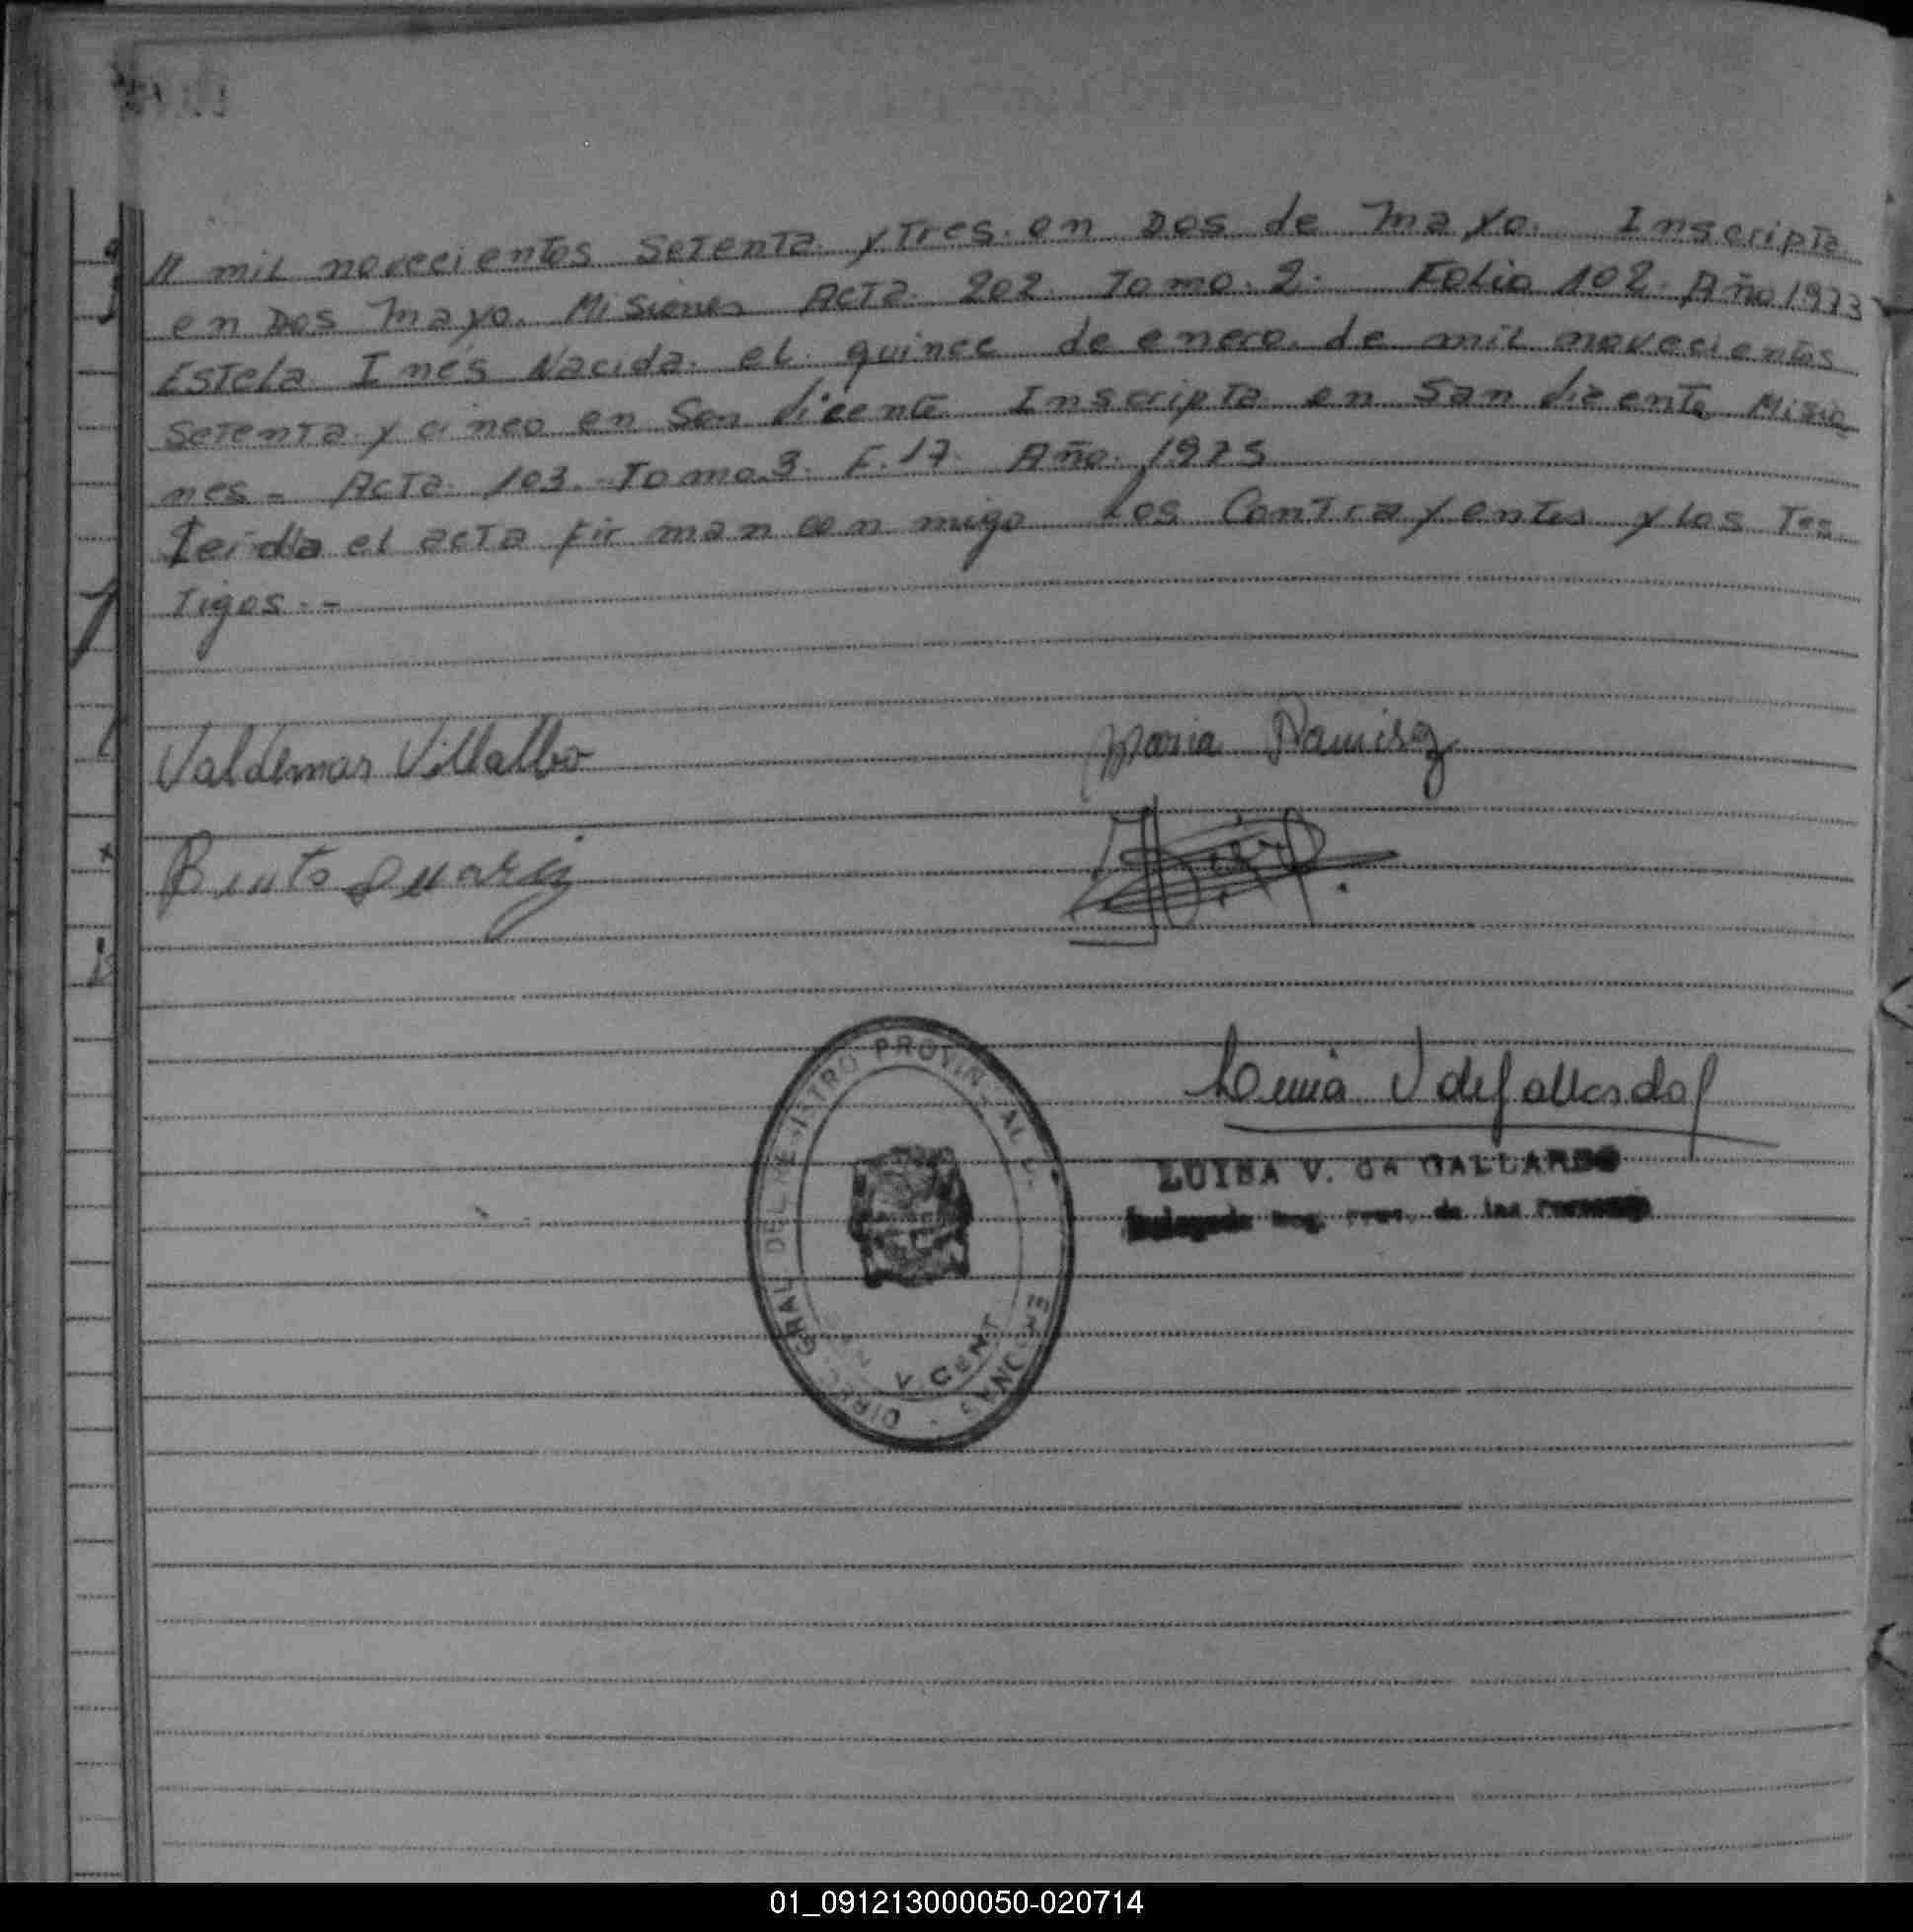 mil novecientos Setenta y Tres en Dos de Mayo. Inscripta
en Dos Mayo. Misiones Acta 202. Tomo. 2. Folio 102. Año 1973
Estela Inés Nacida el quince de enero de mil novecientos
Setenta y cinco en San Vicente Inscripta en San Vicente Misio
nes - Acta 103. Tomo 3. F. 17. Año 1975
Leida el acta firman conmigo Los Contrayentes y los Tes
Tigos. -
Valdemar Villalba
Maria Ramirez
DIREC. GRAL DEL REGISTRO PROVINCIAL DE PERSONAS
V CENT
LUISA V. DE GALLARDO
Reg. Prov. de las Personas
01_091213000050-020714